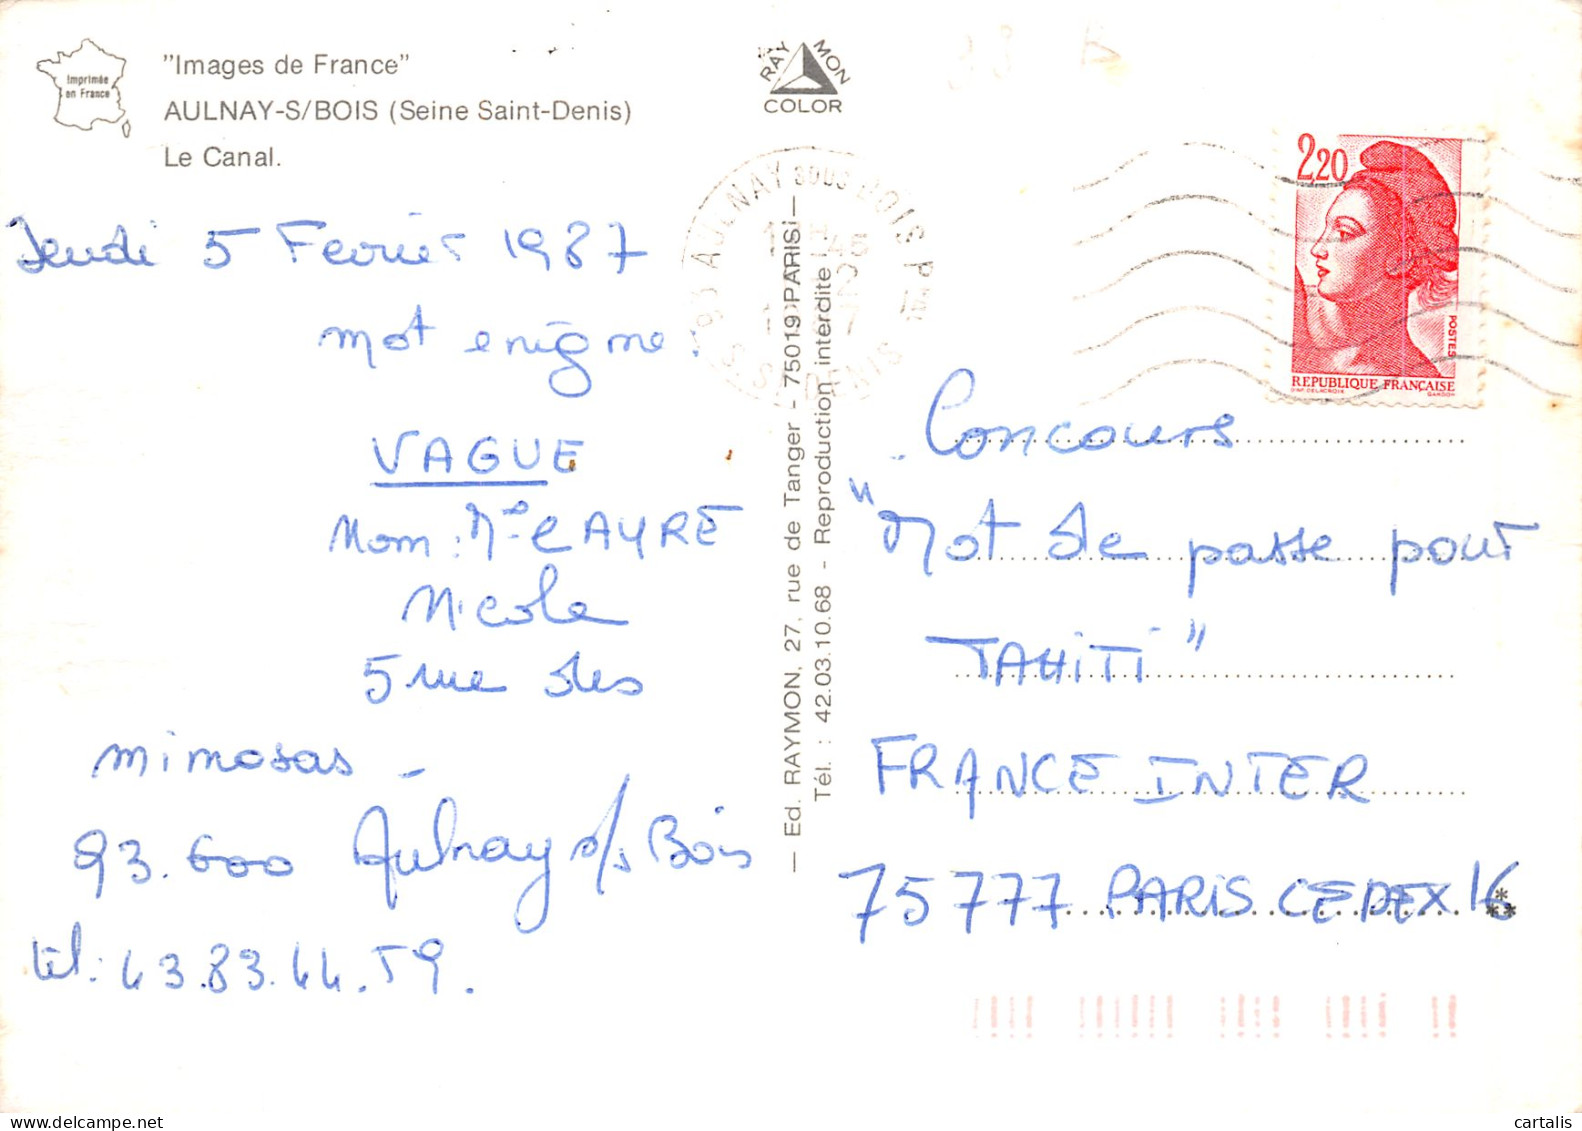 Imprimée
en France
"Images de France"
AULNAY-S/BOIS (Seine Saint-Denis)
Le Canal.
RAYMON
COLOR
2,20
POSTES
REPUBLIQUE FRANÇAISE
D'AP. DELACROIX GANDON
93 AULNAY SOUS BOIS Pal
Jeudi 5 Fevrier 1987
mot enigme :
VAGUE
Nom : Me CAYRE
Nicole
5 rue des
mimosas -
93.600 Aulnay s/s Bois
tel : 43.83.44.59.
— Ed. RAYMON, 27, rue de Tanger - 75019 PARIS —
Tél. : 42.03.10.68 - Reproduction interdite
Concours
"Mot de passe pour
TAHITI"
FRANCE INTER
75777 PARIS CEDEX 16
cartalis